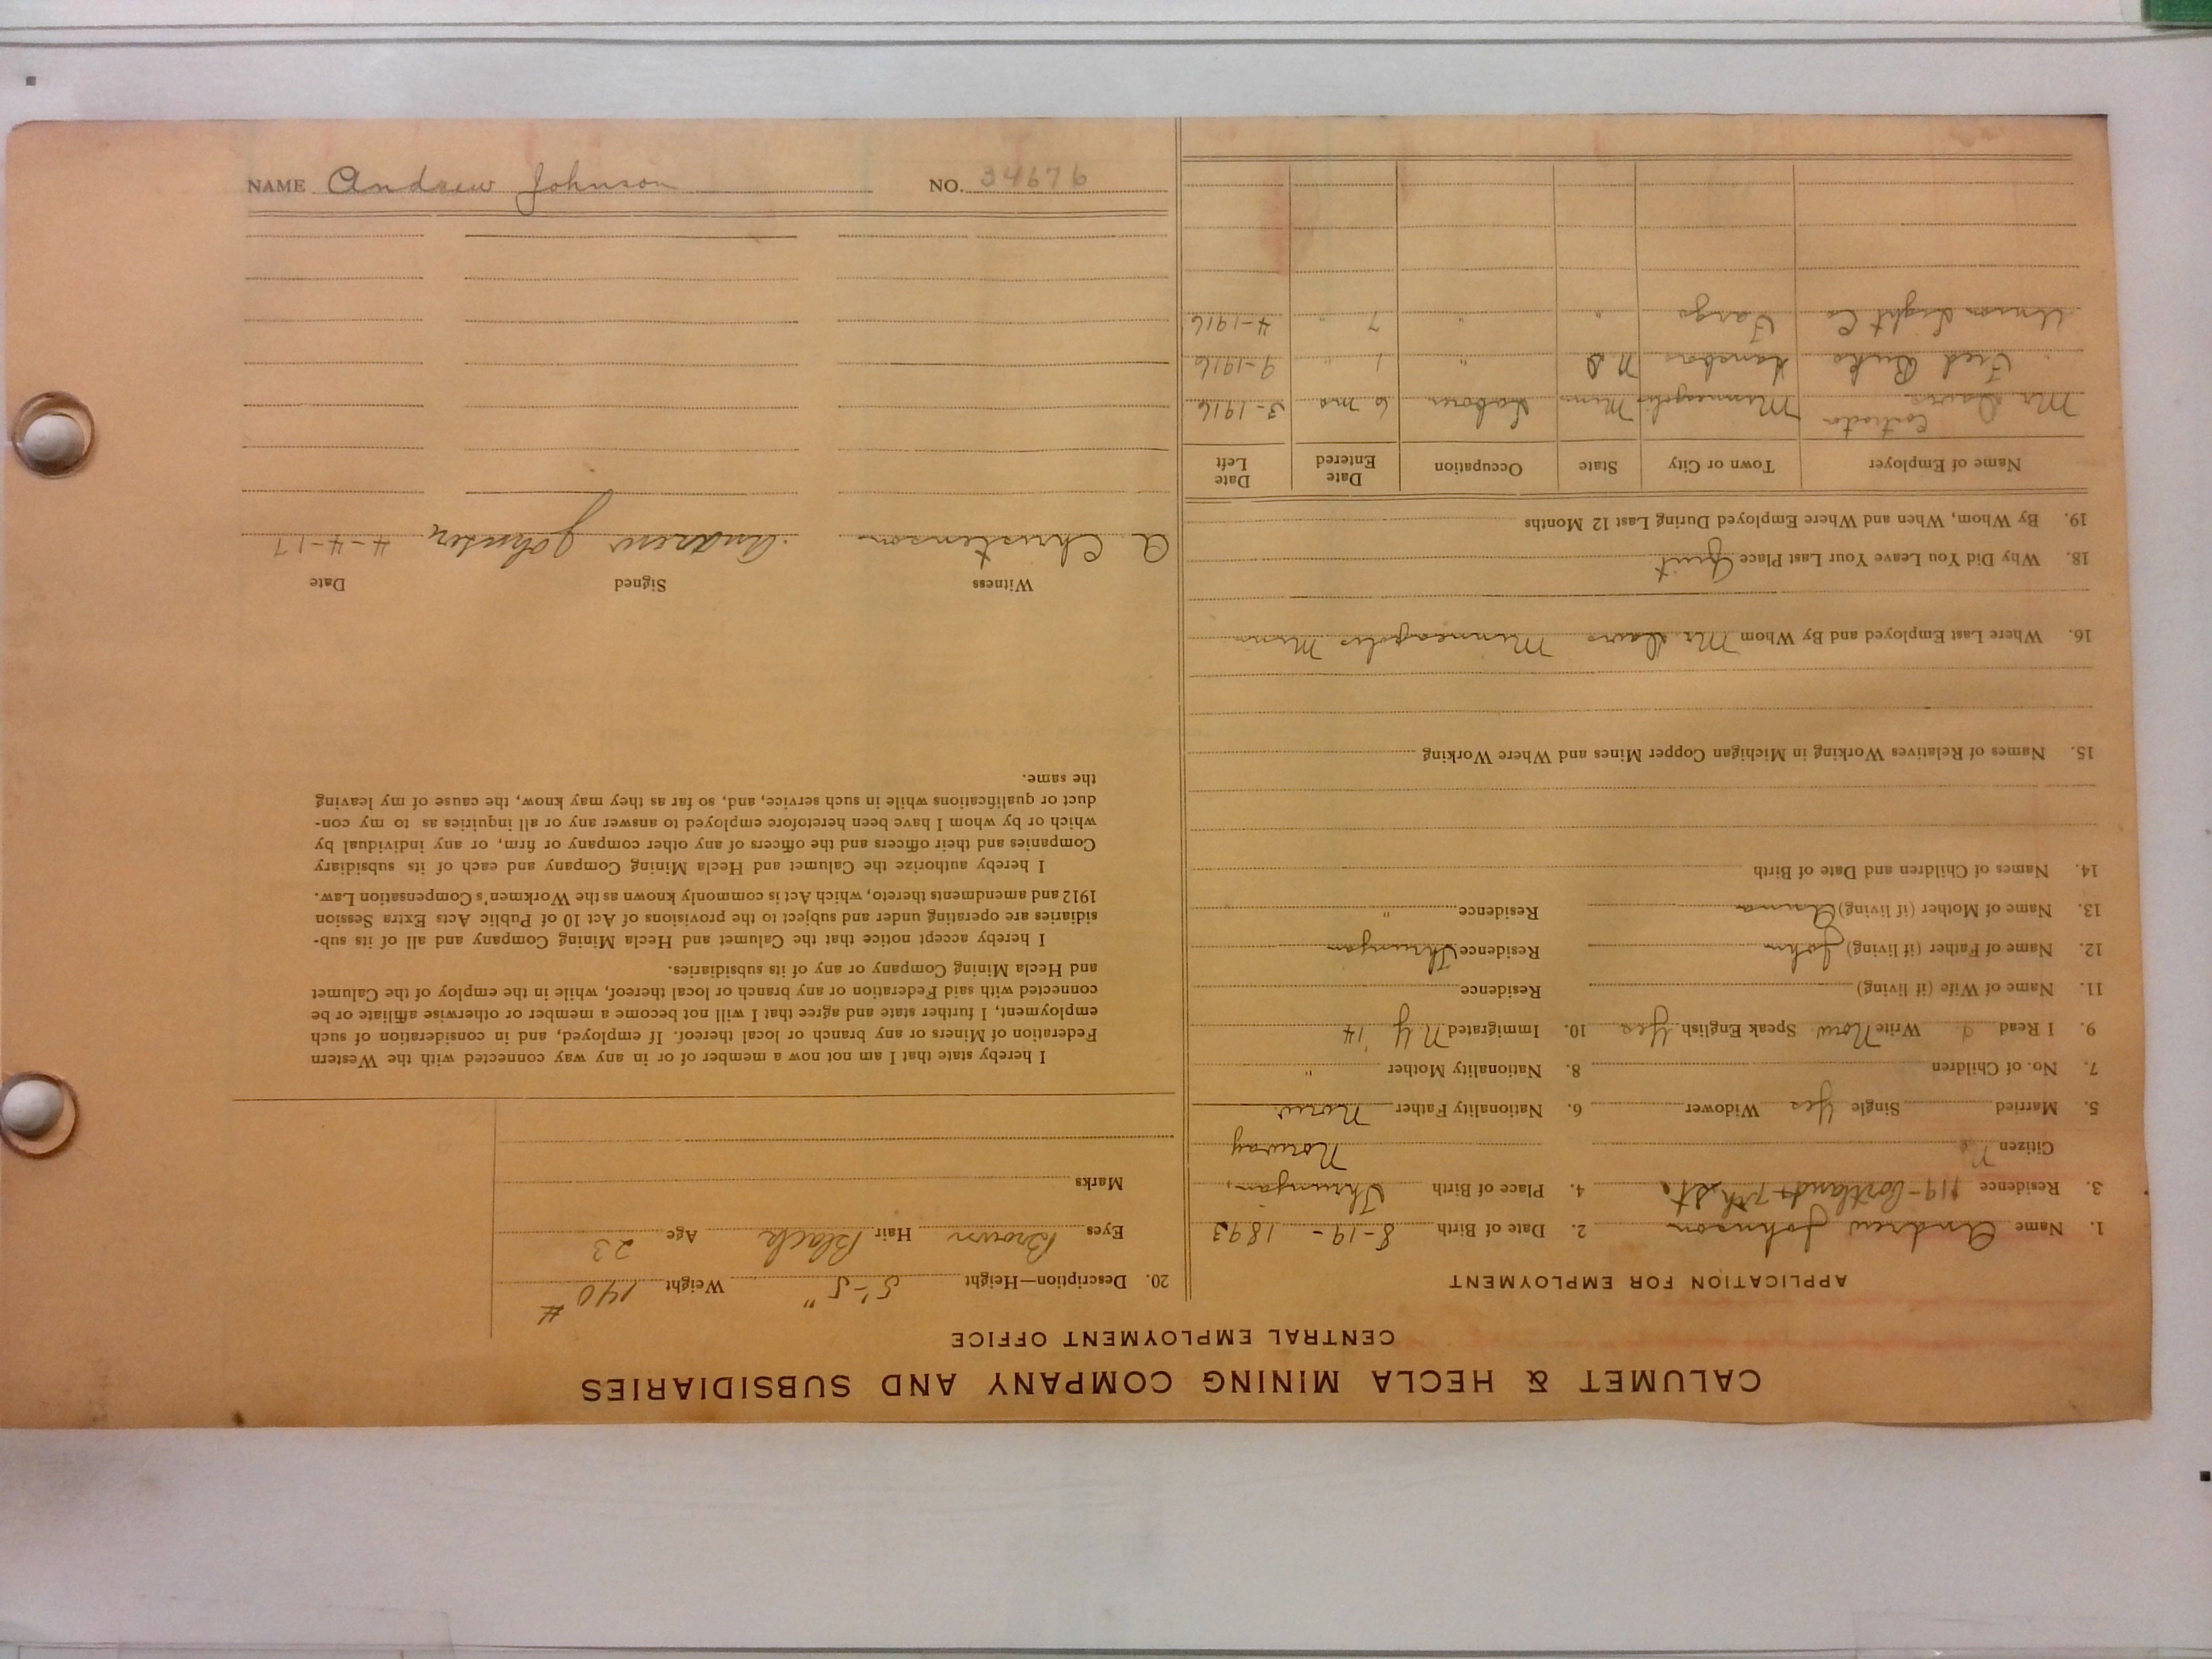 CALUMET & HECLA MINING COMPANY AND SUBSIDIARIES
CENTRAL EMPLOYMENT OFFICE
APPLICATION FOR EMPLOYMENT
1. Name Andrew Johnson 2. Date of Birth 8-19-1893
3. Residence 119- Portland + 7th St. 4. Place of Birth
Citizen No Norway
5. Married Single Yes Widower 6. Nationality Father Norw.
7. No. of Children 8. Nationality Mother "
9. I Read Write Norw Speak English Yes 10. Immigrated N Y 14
11. Name of Wife (if living) Residence
12. Name of Father (if living) John Residence
13. Name of Mother (if living) Residence "
14. Names of Children and Date of Birth
15. Names of Relatives Working in Michigan Copper Mines and Where Working
16. Where Last Employed and By Whom Mr Minneapolis Minn
18. Why Did You Leave Your Last Place Quit
19. By Whom, When and Where Employed During Last 12 Months
Name of Employer Town or City State Occupation Date Entered Date Left
Mr Minneapolis Minn Laborer 6 mo 3-1916
Fred N D " 1 " 9-1916
Union Light Co Fargo " " 7 " 4-1916
20. Description—Height 5'-5" Weight 140 #
Eyes Brown Hair Black Age 23
Marks
I hereby state that I am not now a member of or in any way connected with the Western
Federation of Miners or any branch or local thereof. If employed, and in consideration of such
employment, I further state and agree that I will not become a member or otherwise affiliate or be
connected with said Federation or any branch or local thereof, while in the employ of the Calumet
and Hecla Mining Company or any of its subsidiaries.
I hereby accept notice that the Calumet and Hecla Mining Company and all of its sub-
sidiaries are operating under and subject to the provisions of Act 10 of Public Acts Extra Session
1912 and amendments thereto, which Act is commonly known as the Workmen's Compensation Law.
I hereby authorize the Calumet and Hecla Mining Company and each of its subsidiary
Companies and their officers and the officers of any other company or firm, or any individual by
which or by whom I have been heretofore employed to answer any or all inquiries as to my con-
duct or qualifications while in such service, and, so far as they may know, the cause of my leaving
the same.
Witness Signed Date
A Christenson Andrew Johnson 4-4-17
NAME Andrew Johnson NO. 34676